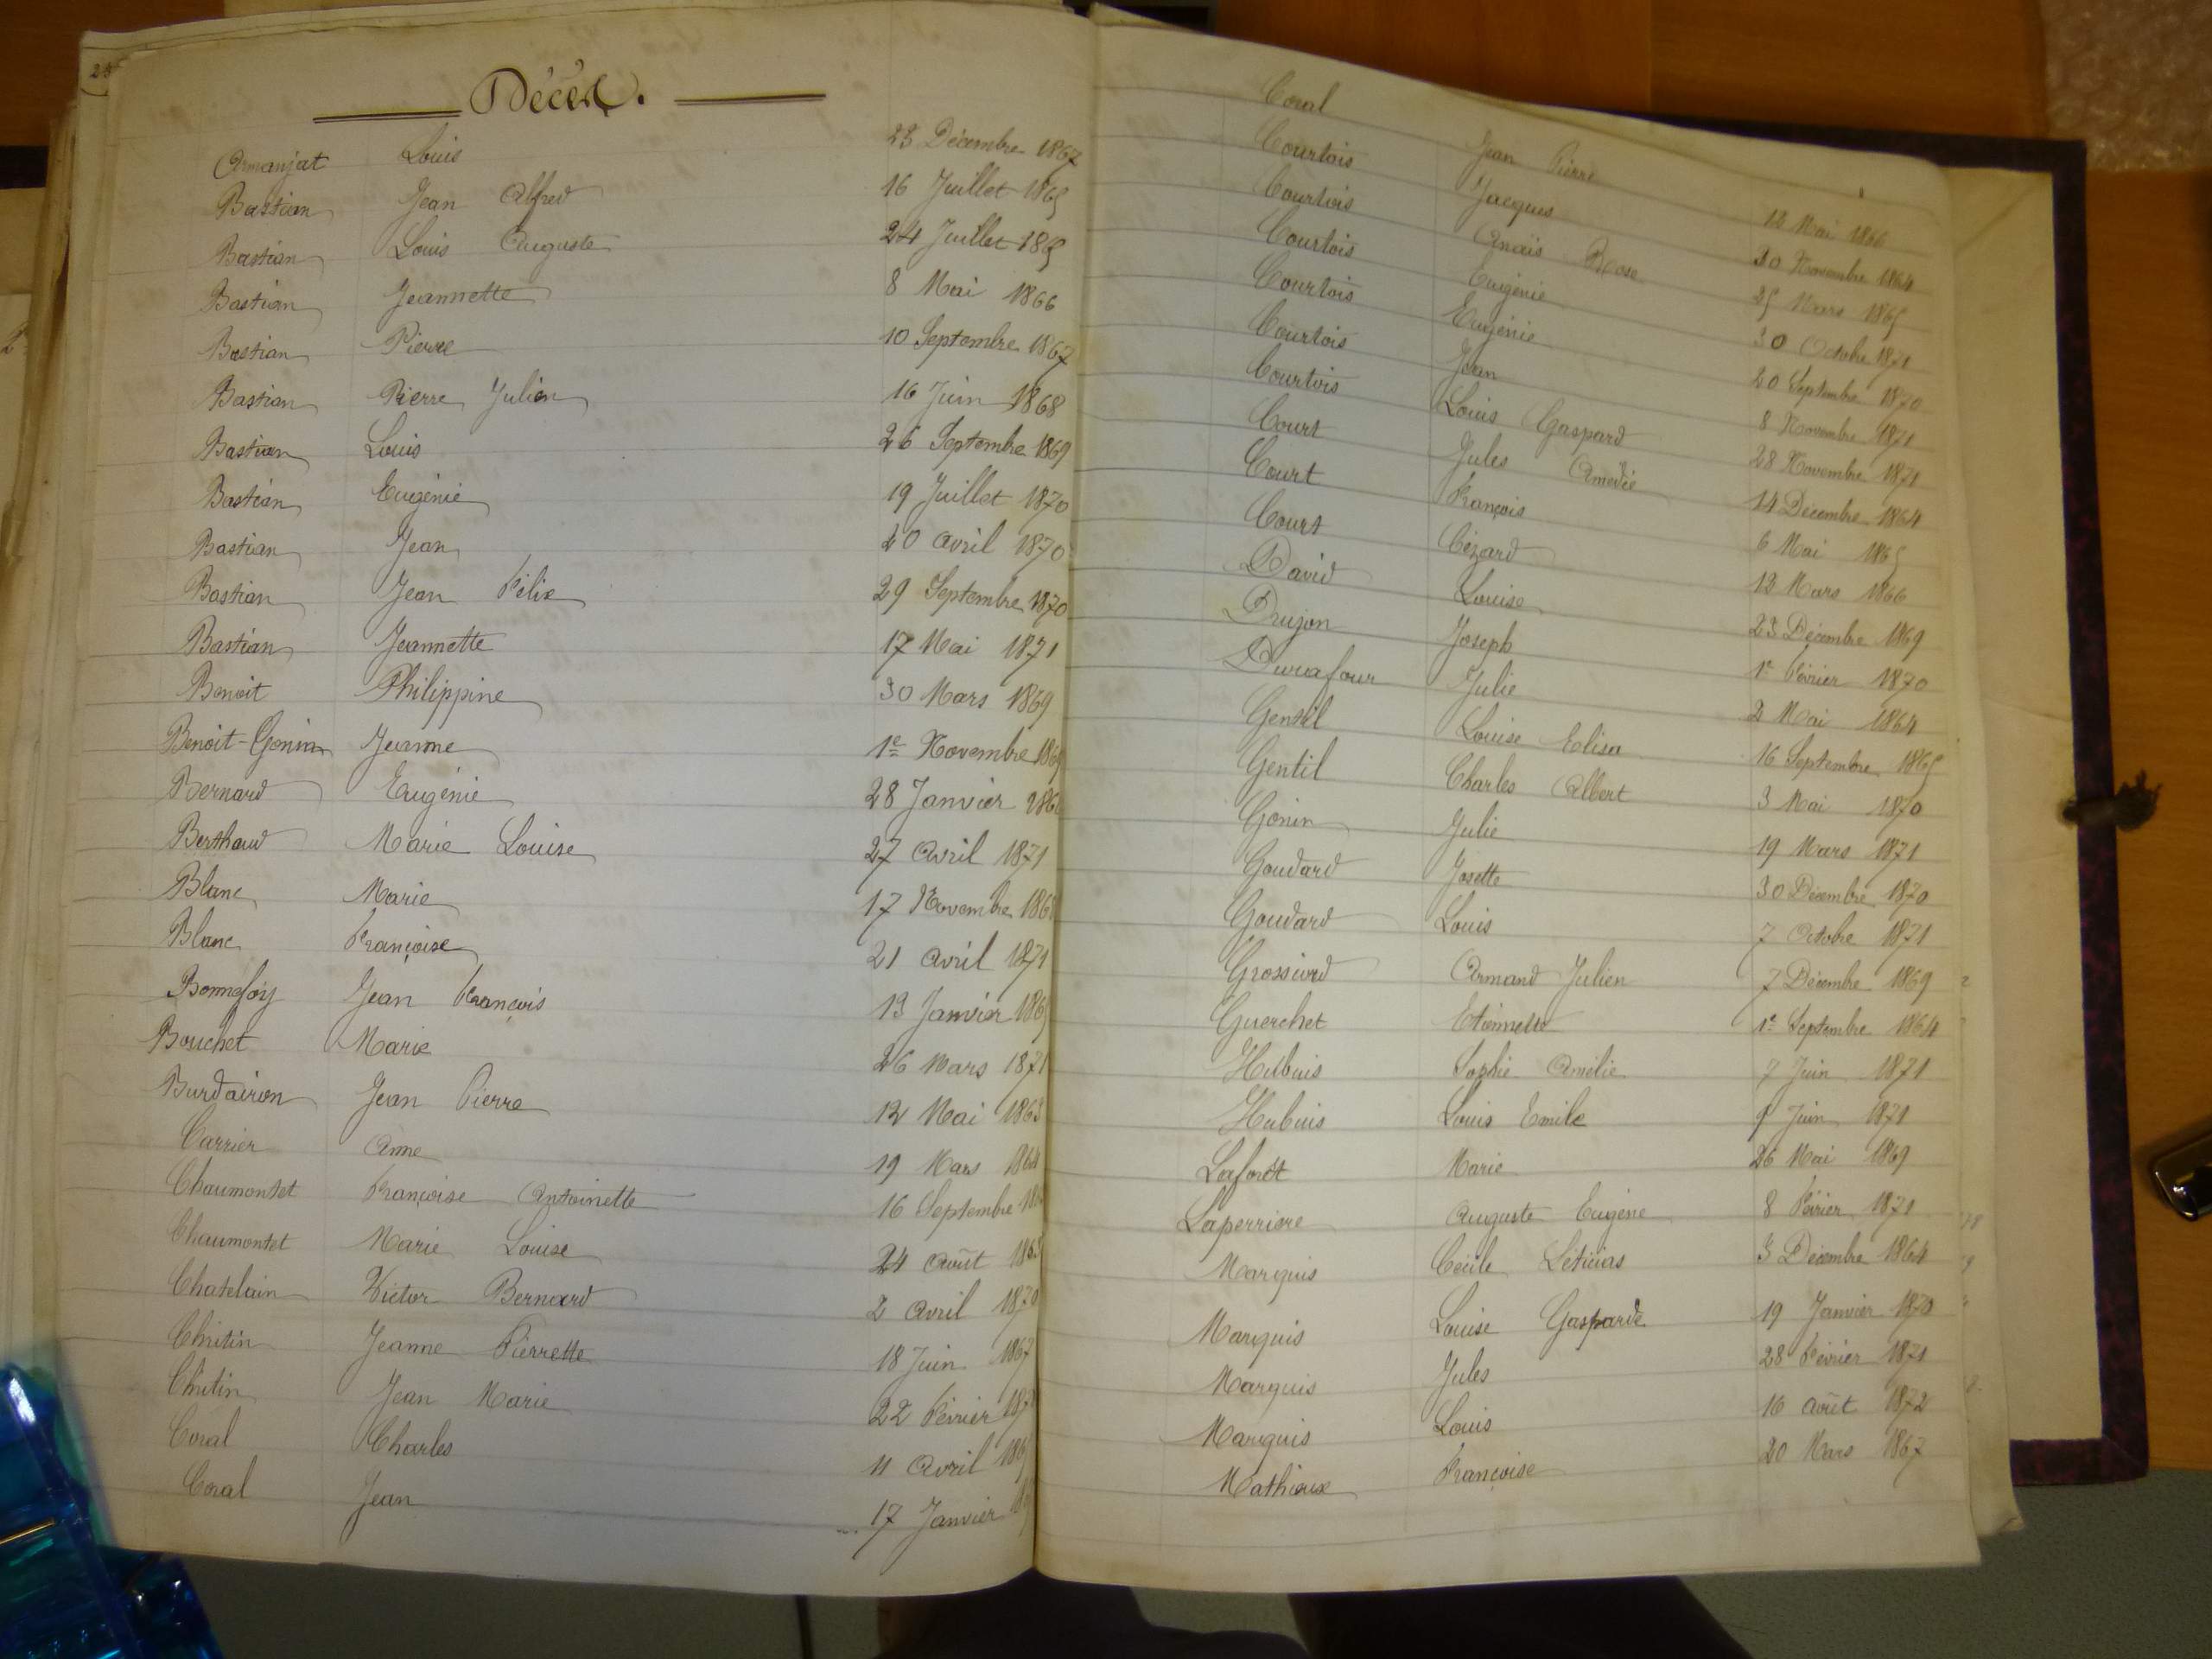 Décès.
Armanjat Louis 23 Décembre 1867
Bastian Jean Alfred 16 Juillet 1865
Bastian Louis Auguste 24 Juillet 1865
Bastian Jeannette 8 Mai 1866
Bastian Pierre 10 Septembre 1867
Bastian Pierre Julien 16 Juin 1868
Bastian Louis 26 Septembre 1869
Bastian Eugénie 19 Juillet 1870
Bastian Jean 20 Avril 1870
Bastian Jean Félix 29 Septembre 1870
Bastian Jeannette 17 Mai 1871
Benoit Philippine 30 Mars 1869
Benoit-Gonin Jeanne 1e Novembre
Bernard Eugénie 28 Janvier
Berthaud Marie Louise 27 Avril 1871
Blanc Marie 17 Novembre
Blanc Françoise 21 Avril 1871
Bonnefoy Jean François 13 Janvier
Bouchet Marie 26 Mars 1871
Burdairon Jean Pierre 12 Mai
Carrier Anne 19 Mars 1864
Chaumontet Françoise Antoinette 16 Septembre
Chaumontet Marie Louise 24 Août
Chatelain Victor Bernard 2 Avril 1870
Chritin Jeanne Pierrette 18 Juin 1867
Chritin Jean Marie 22 Février
Coral Charles 11 Avril
Coral Jean 17 Janvier
Coral Jean Pierre 18 Mai 1866
Courtois Jacques 30 Novembre 1864
Courtois Anaïs Rose 25 Mars 1865
Courtois Eugénie 30 Octobre 1871
Courtois Eugénie 20 Septembre 1870
Courtois Jean 8 Novembre 1871
Courtois Louis Gaspard 28 Novembre 1871
Court Jules Amédée 14 Décembre 1864
Court François 6 Mai 1865
Court Cézard 13 Mars 1866
David Louise 23 Décembre 1869
Drujon Joseph 1e Février 1870
Durafour Julie 2 Mai 1864
Gentil Louise Elisa 16 Septembre 1865
Gentil Charles Albert 3 Mai 1870
Gonin Julie 19 Mars 1871
Goudard Josette 30 Décembre 1870
Goudard Louis 7 Octobre 1871
Grossiord Armand Julien 7 Décembre 1869
Guerchet Etiennette 1e Septembre 1864
Hubuis Sophie Amélie 7 Juin 1871
Hubuis Louis Emile 9 Juin 1871
Laforêt Marie 26 Mai 1869
Laperriere Auguste Eugène 8 Février 1871
Marquis Cécile Léticias 3 Décembre 1864
Marquis Louise Gasparde 19 Janvier 1870
Marquis Jules 28 Février 1871
Marquis Louis 16 Août 1872
Mathieux Françoise 20 Mars 1867